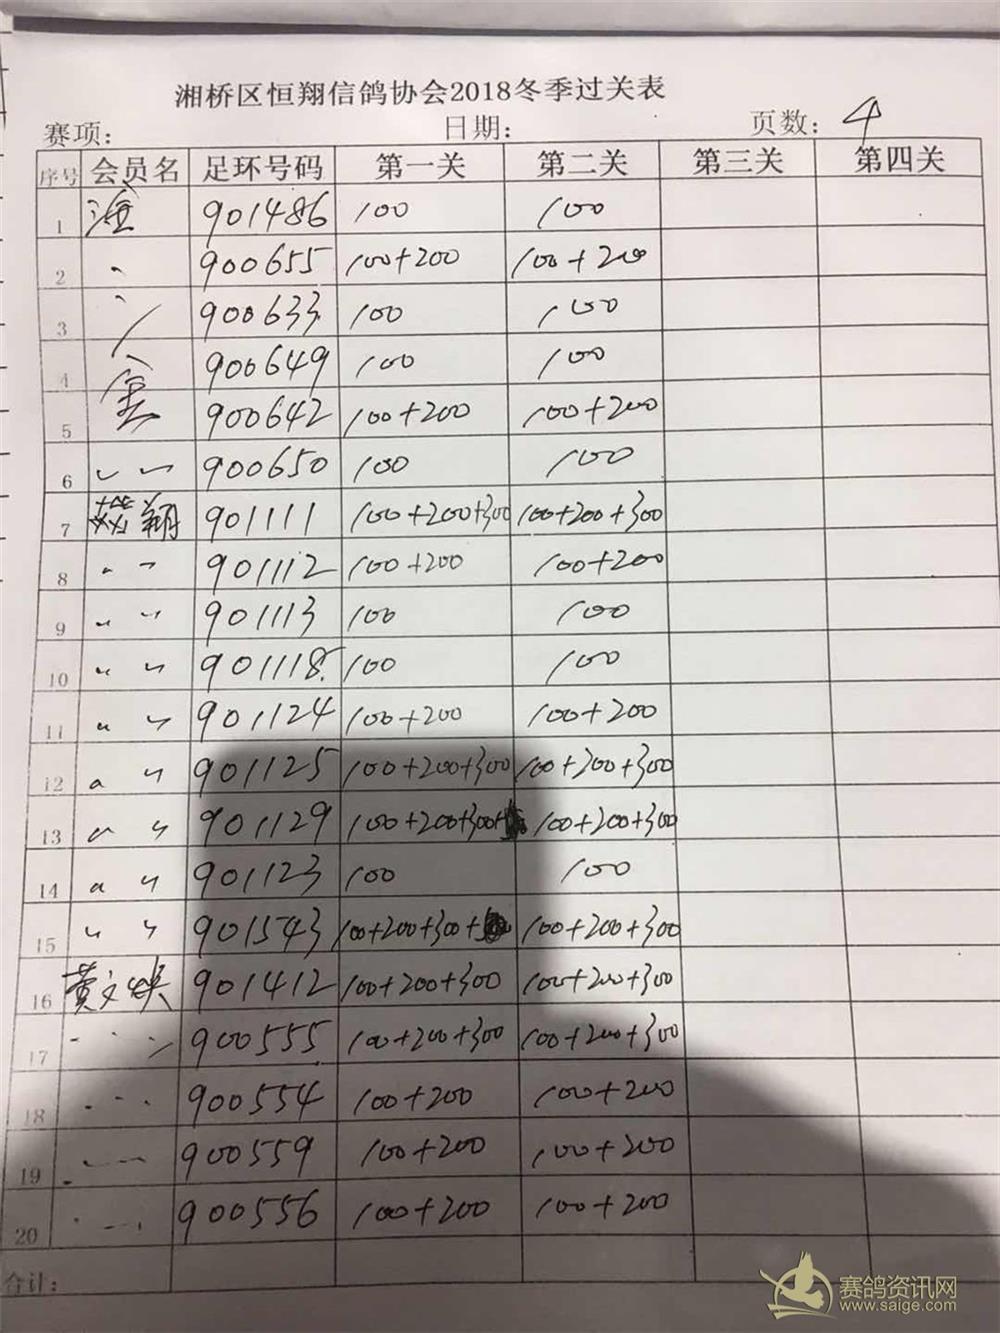 湘桥区恒翔信鸽协会2018冬季过关表
赛项： 日期： 页数：4
序号 会员名 足环号码 第一关 第二关 第三关 第四关
1 901486 100 100
2 〃 900655 100+200 100+200
3 900633 100 100
4 900649 100 100
5 900642 100+200 100+200
6 〃 〃 900650 100 100
7 翔 901111 100+200+300 100+200+300
8 〃 〃 901112 100+200 100+200
9 〃 〃 901113 100 100
10 〃 〃 901118 100 100
11 〃 〃 901124 100+200 100+200
12 〃 〃 901125 100+200+300 100+200+300
13 〃 〃 901129 100+200+300+ 100+200+300
14 〃 〃 901123 100 100
15 〃 〃 901543 100+200+300+ 100+200+300
16 黄文 901412 100+200+300 100+200+300
17 900555 100+200+300 100+200+300
18 900554 100+200 100+200
19 900559 100+200 100+200
20 900556 100+200 100+200
合计：
赛鸽资讯网
www.saige.com